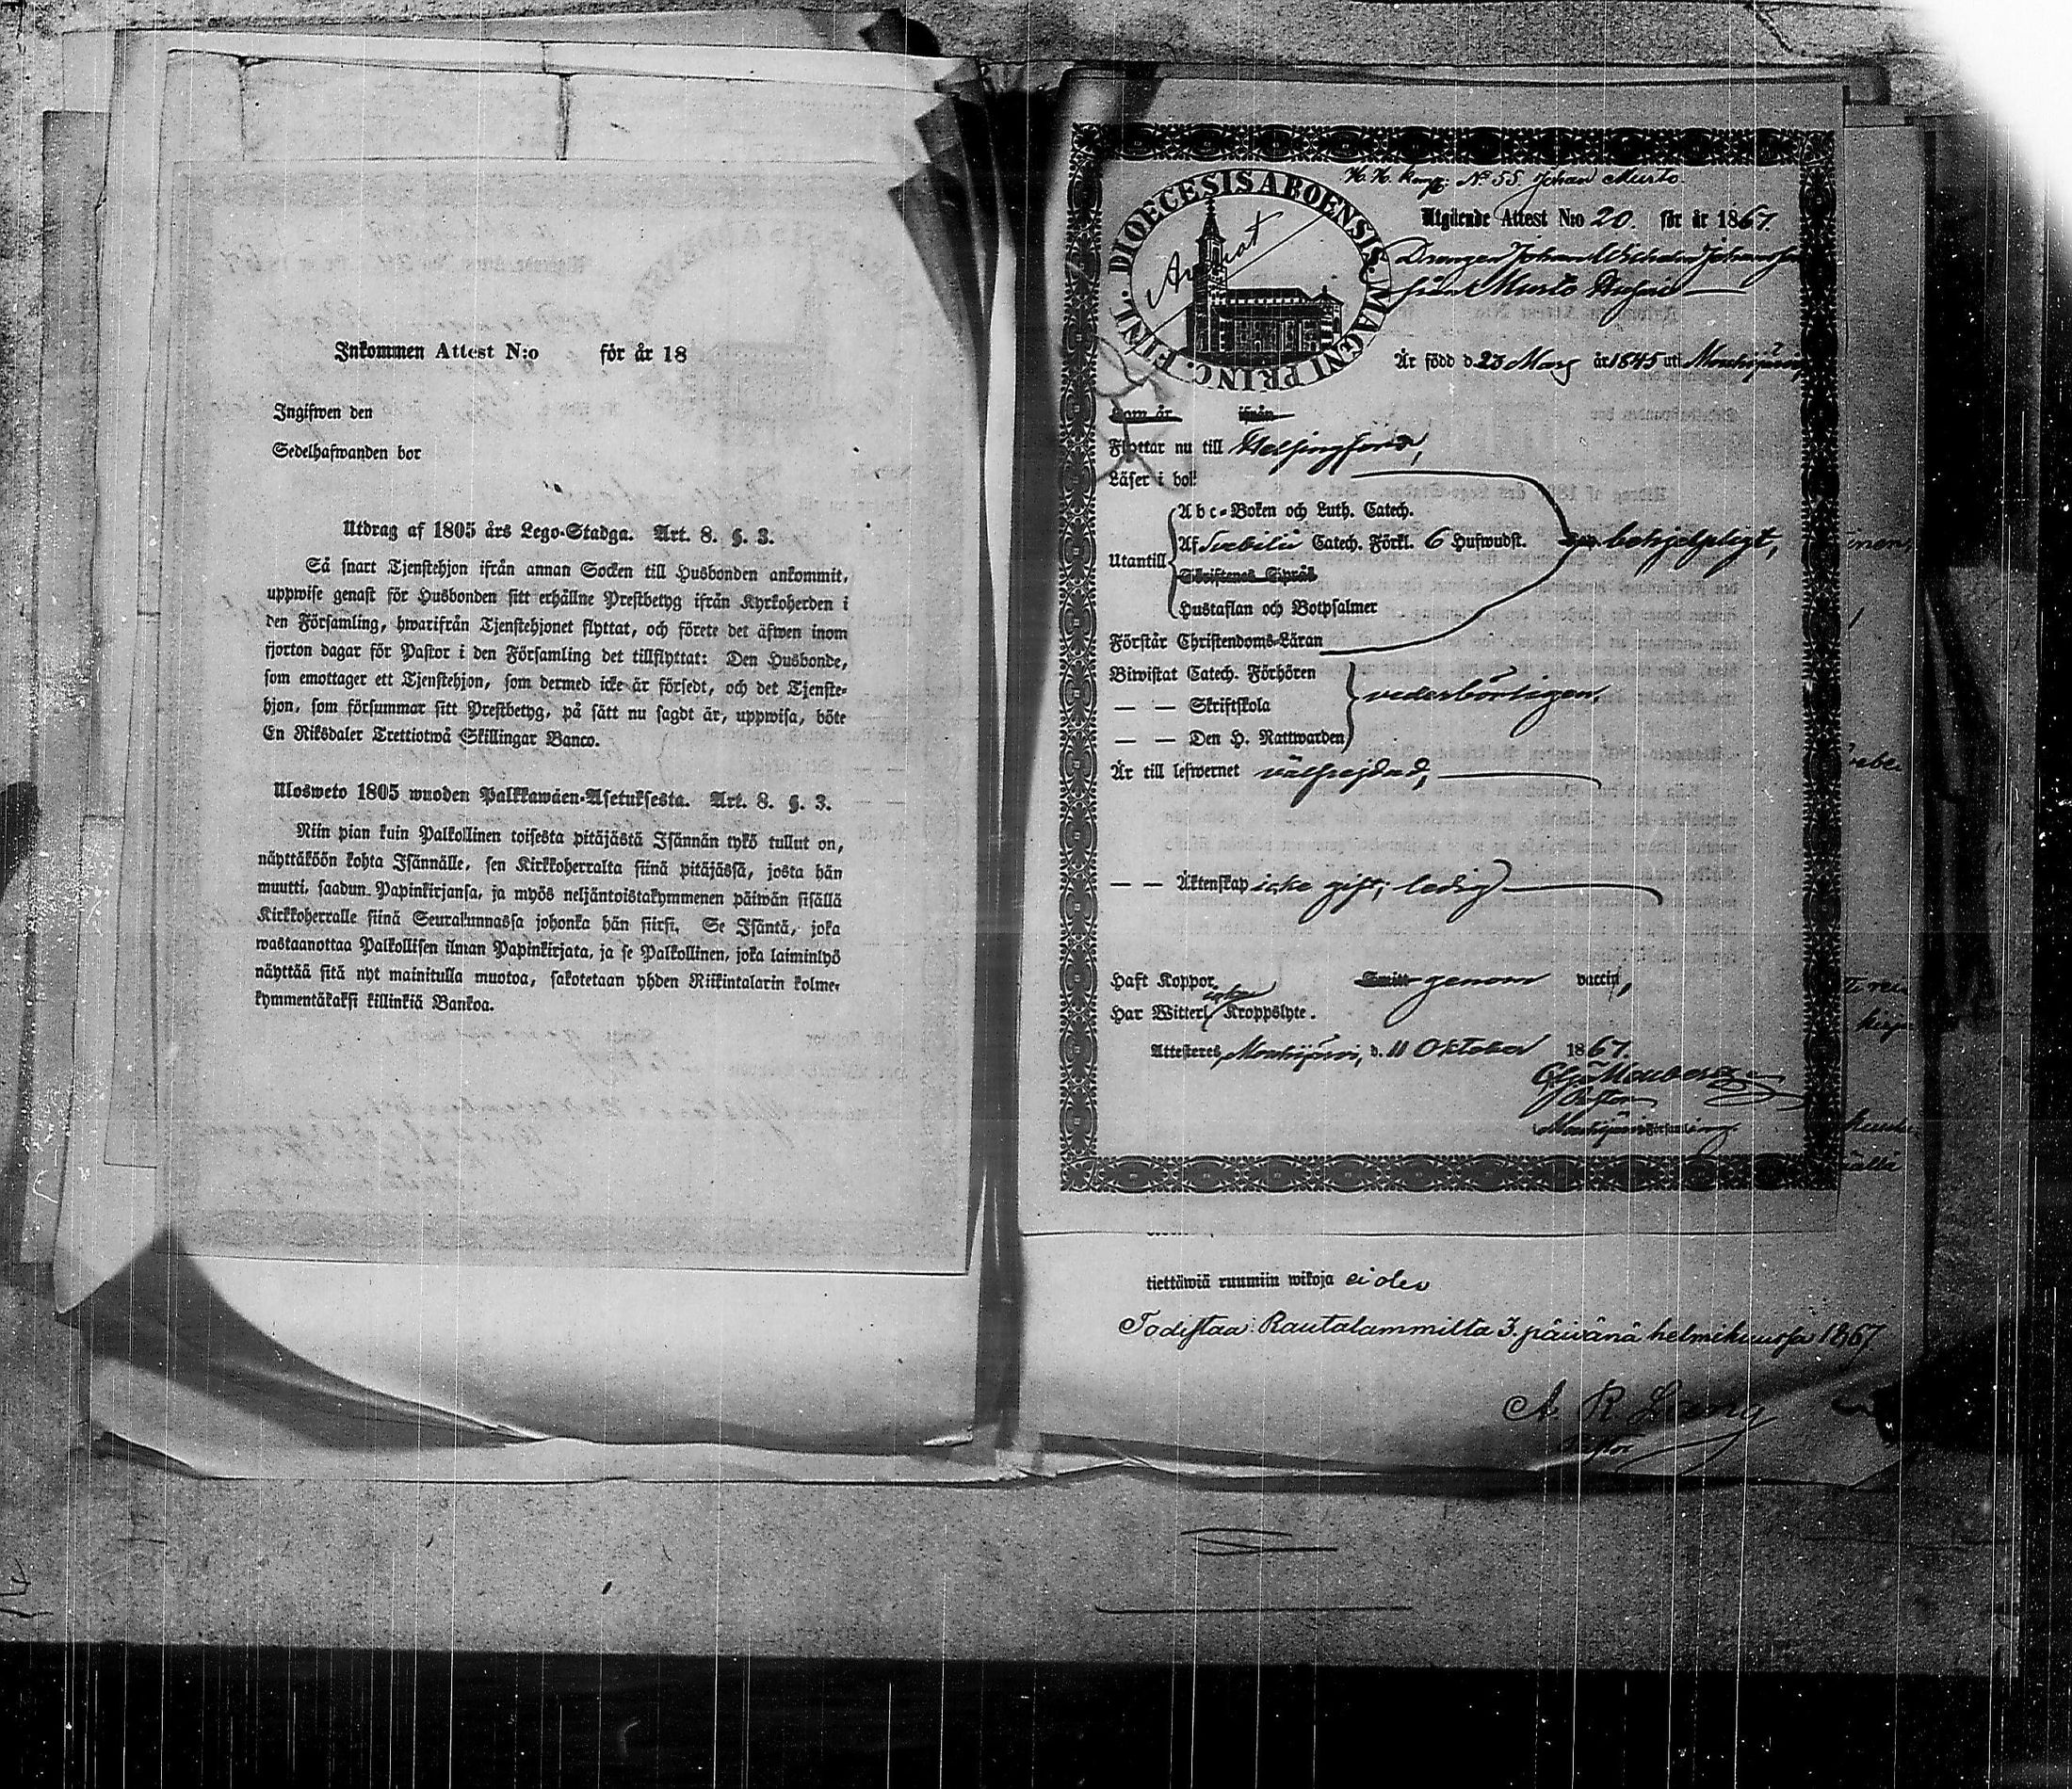 Inkommen Attest N:o för år 18
Ingifwen den
Sedelhafwanden bor
Utdrag af 1805 års Lego-Stadga. Art. 8. §. 3.
Så snart Tjenstehjon ifrån annan Socken till Husbonden ankommit,
uppwise genast för Husbonden sitt erhållne Prestbetyg ifrån Kyrkoherden i
den Församling, hwarifrån Tjenstehjonet flyttat, och förete det äfwen inom
fjorton dagar för Pastor i den Församling det tillflyttat: Den Husbonde,
som emottager ett Tjenstehjon, som dermed icke är försedt, och det Tjenste-
hjon, som försummar sitt Prestbetyg, på sätt nu sagdt är, uppwisa, böte
En Riksdaler Trettiotwå Skillingar Banco.
Ulosweto 1805 wuoden Palkkawäen-Asetuksesta. Art. 8. §. 3.
Niin pian kuin Palkollinen toisesta pitäjästä Isännän tykö tullut on,
näyttäköön kohta Isännälle, sen Kirkkoherralta siinä pitäjässä, josta hän
muutti, saadun Papinkirjansa, ja myös neljäntoistakymmenen päiwän sisällä
Kirkkoherralle siinä Seurakunnassa johonka hän siirsi. Se Isäntä, joka
wastaanottaa Palkollisen ilman Papinkirjata, ja se Palkollinen, joka laiminlyö
näyttää sitä nyt mainitulla muotoa, sakotetaan yhden Riikintalarin kolme-
kymmentäkaksi killinkiä Bankoa.
N:o 55. Johan Murto.
DIOECESIS ABOENSIS MAGNI PRINC. FINL.
Utgående Attest N:o 20. för år 1867.
Drengen Johan Wilhelm Johansson
från Murto
Är född d. 23 Mars år 1845 uti Mouhijärvi,
Som är ifrån
Flyttar nu till Helsingfors,
Läser i bok
Abc-Boken och Luth. Catech.
Utantill Af Svebilii Catech. Förkl. 6 Hufwudst. behjelpligt,
Skriftenes Språk
Hustaflan och Botpsalmer
Förstår Christendoms-Läran
Biwistat Catech. Förhören
— — Skriftskola vederbörligen,
— — Den H. Nattwarden
Är till lefwernet välfrejdad,
— — Äktenskap icke gift; ledig
Haft Koppor genom vaccin,
Har Witterl. icke Kroppslyte.
Attesteres, Mouhijärvi, d. 11 Oktober 1867.
Pastor
Mouhijärvi Församling
tiettäwiä ruumiin wikoja ei ole
Todistaa: Rautalammilta 3. päivänä helmikuussa 1867
A. R. Lang
Pastor